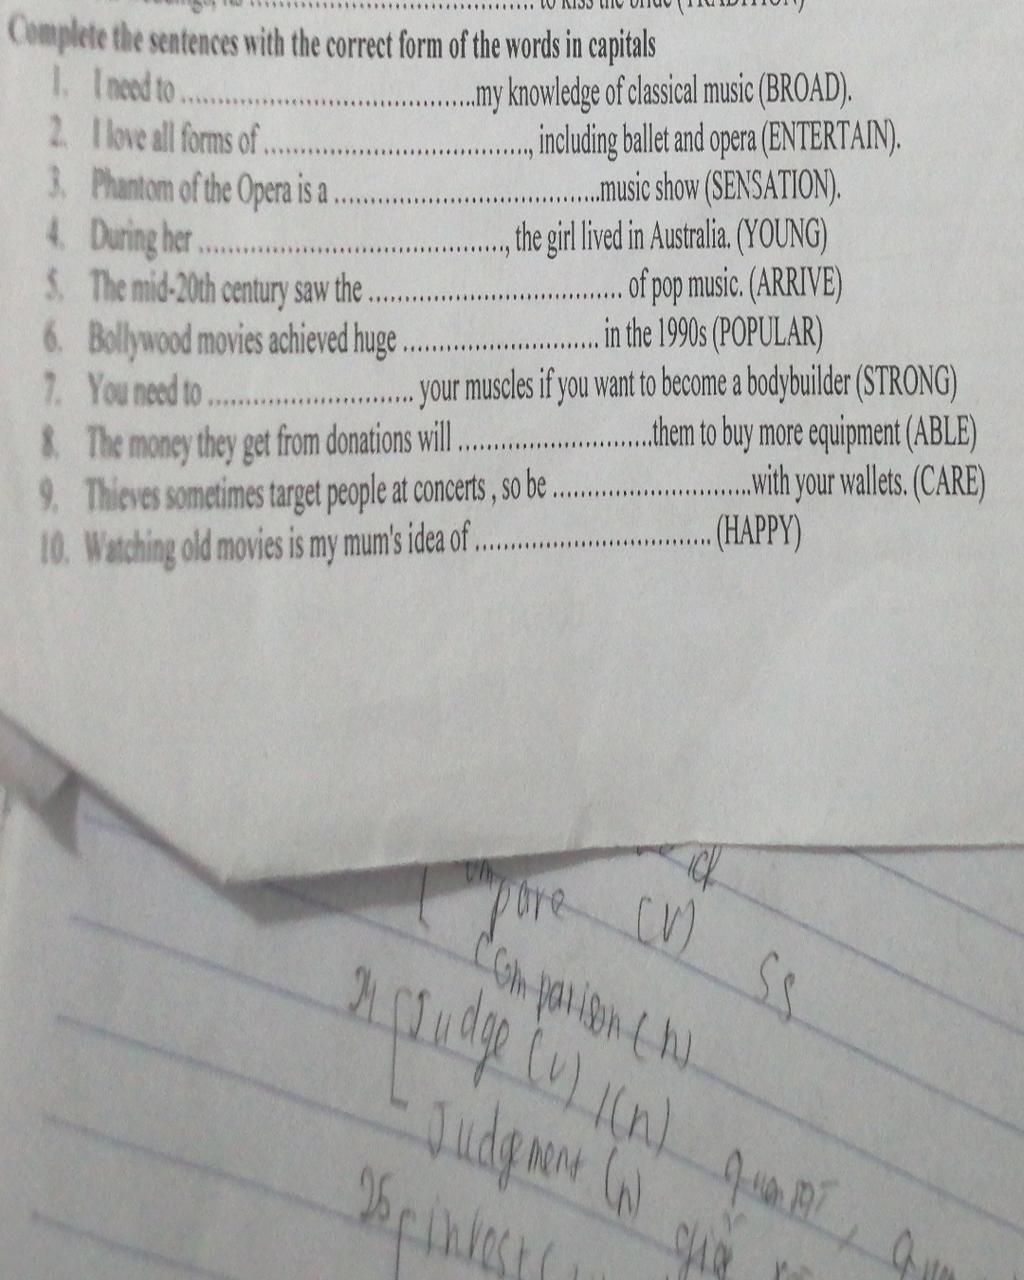 to kiss the bride (TRADITION)
Complete the sentences with the correct form of the words in capitals
1. I need to ........................................my knowledge of classical music (BROAD).
2. I love all forms of ...................................., including ballet and opera (ENTERTAIN).
3. Phantom of the Opera is a ....................................music show (SENSATION).
4. During her .........................................., the girl lived in Australia. (YOUNG)
5. The mid-20th century saw the .................................. of pop music. (ARRIVE)
6. Bollywood movies achieved huge .......................... in the 1990s (POPULAR)
7. You need to ........................... your muscles if you want to become a bodybuilder (STRONG)
8. The money they get from donations will ..........................them to buy more equipment (ABLE)
9. Thieves sometimes target people at concerts , so be ..........................with your wallets. (CARE)
10. Watching old movies is my mum's idea of ............................... (HAPPY)
pare (v)
SS
comparison (n)
24 Judge (v) /(n)
Judgement (n)
25 invest (